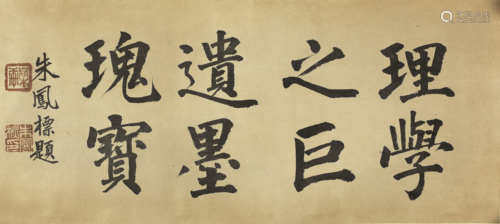 理學
之巨
遺墨
瑰寶
朱鳳標題